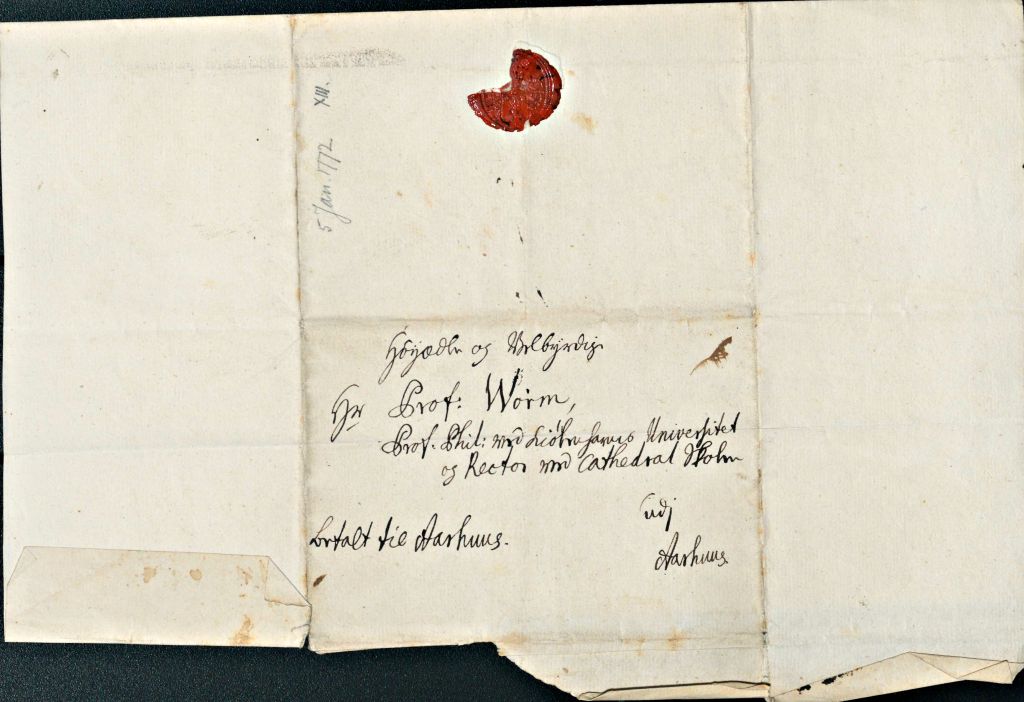 5 Jan. 1772 XIII.
Höÿædle og Velbÿrdige
Hr Prof: Worm,
Prof. Phil: ved Kiöbenhavns Universitet
og Rector ved Cathedral Skolen
udj
Betalt til Aarhuus.
Aarhuus